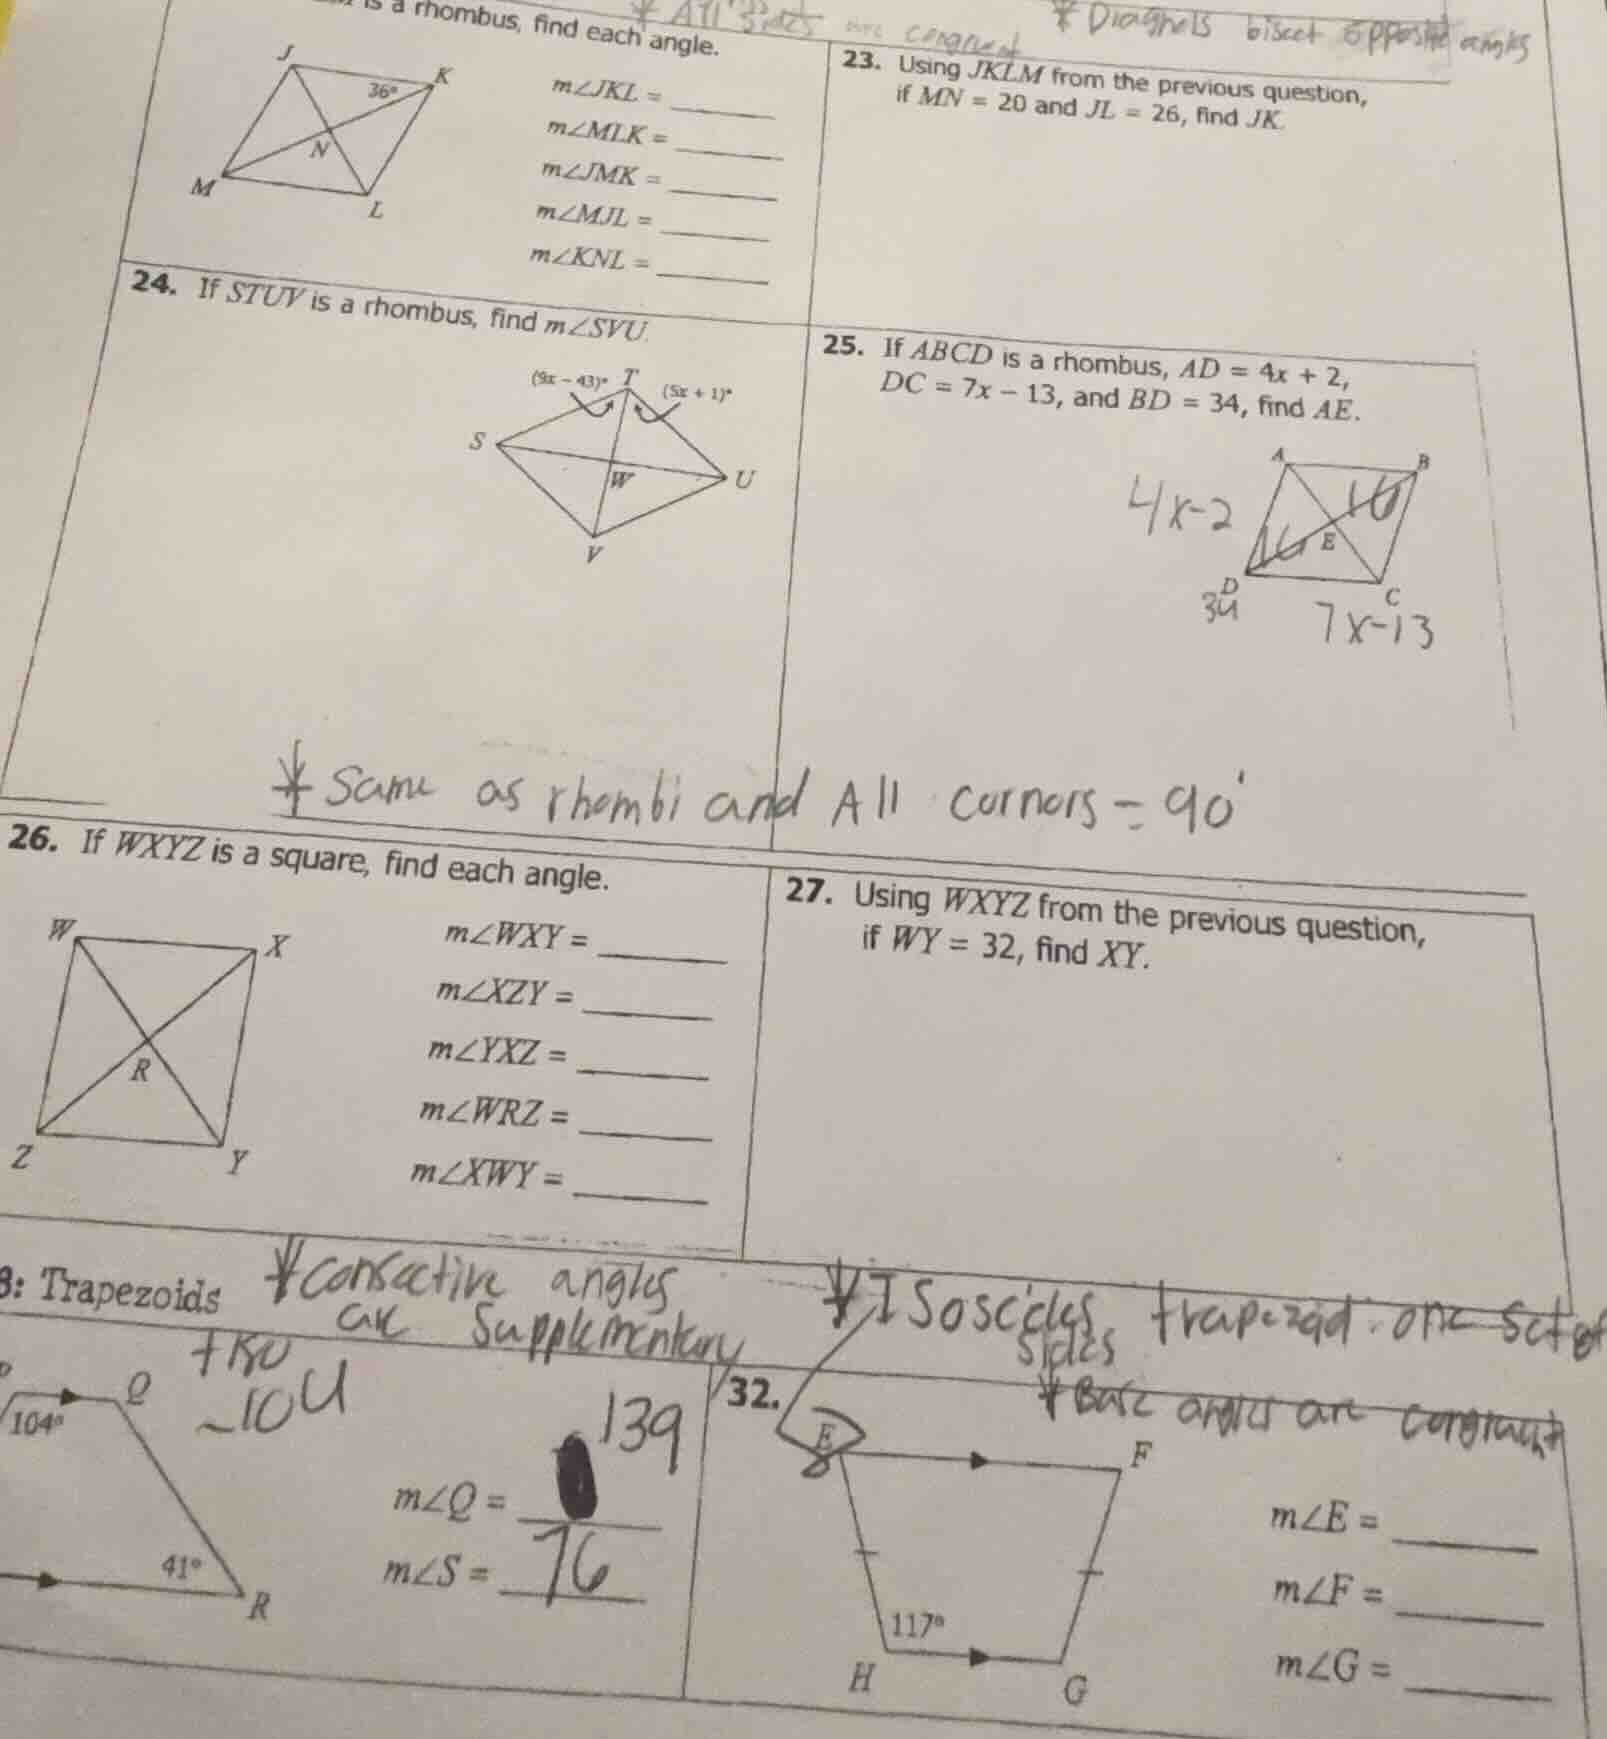 is a rhombus, find each angle.
* All sides are congruent
* Diagnels bisect opposite angles
J
K
36°
N
M
L
m∠JKL = ______
m∠MLK = ______
m∠JMK = ______
m∠MJL = ______
m∠KNL = ______
23. Using JKLM from the previous question,
if MN = 20 and JL = 26, find JK.
24. If STUV is a rhombus, find m∠SVU.
(9x − 43)°
T
(5x + 1)°
S
W
U
V
25. If ABCD is a rhombus, AD = 4x + 2,
DC = 7x − 13, and BD = 34, find AE.
A
B
4x-2
16
16
E
D
C
34
7x-13
* Same as rhombi and All cornors = 90°
26. If WXYZ is a square, find each angle.
W
X
R
Z
Y
m∠WXY = ______
m∠XZY = ______
m∠YXZ = ______
m∠WRZ = ______
m∠XWY = ______
27. Using WXYZ from the previous question,
if WY = 32, find XY.
3: Trapezoids
* consective angles
are Supplementary
* Isoscicles trapezoid: one set of
sides
* Base angles are congruent
Q
104°
41°
R
m∠Q = 139
m∠S = 76
32.
E
F
117°
H
G
m∠E = ______
m∠F = ______
m∠G = ______